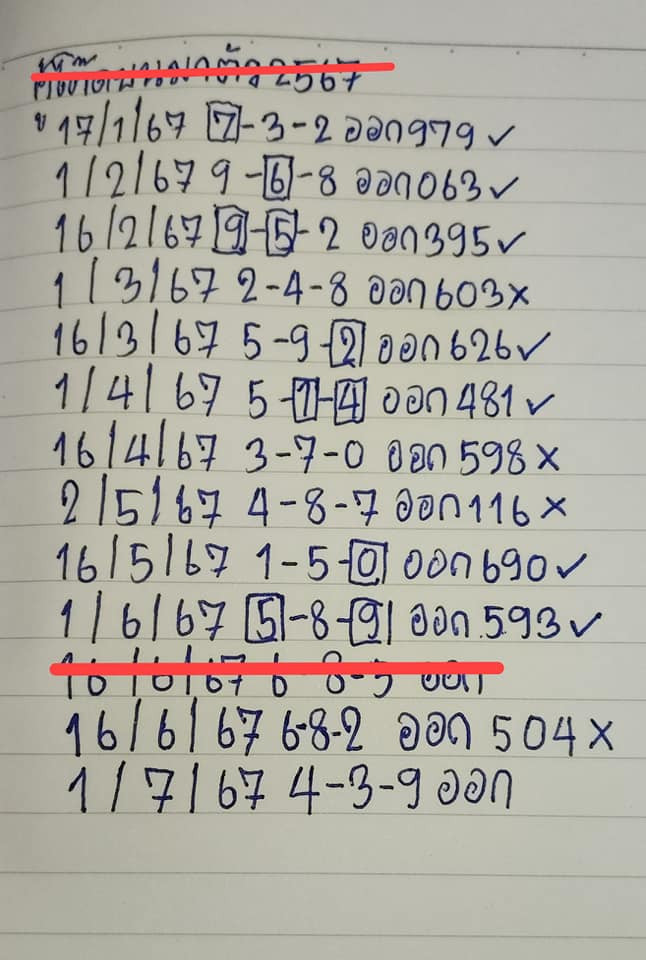 2567
ข 17/1/67 7-3-2 ออก979 ✓
1/2/67 9-6-8 ออก063 ✓
16/2/67 9-5-2 ออก395 ✓
1/3/67 2-4-8 ออก603 ×
16/3/67 5-9-2 ออก626 ✓
1/4/67 5-1-4 ออก481 ✓
16/4/67 3-7-0 ออก598 ×
2/5/67 4-8-7 ออก116 ×
16/5/67 1-5-0 ออก690 ✓
1/6/67 5-8-9 ออก593 ✓
16/6/67 6-8-5 ออก
16/6/67 6-8-2 ออก 504 ×
1/7/67 4-3-9 ออก